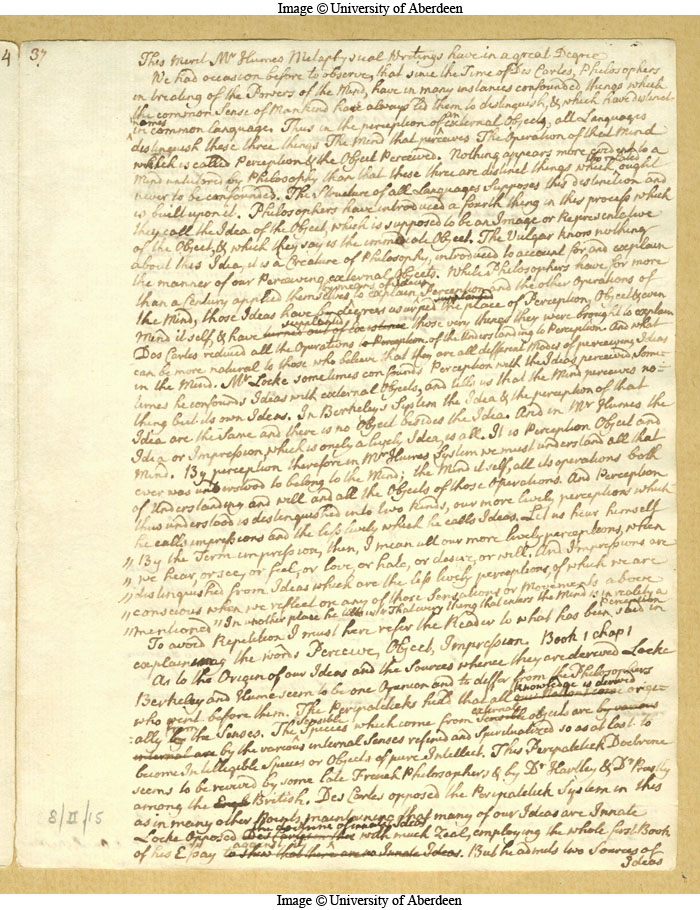 Image © University of Aberdeen
4
37
This Merit Mr Humes Metaphysical Writings have in a great Degree
We had occasion before to observe, that since the Time of Des Cartes, Philosophers
in treating of the Powers of the Mind, have in many instances confounded things which
the common Sense of Mankind have always led them to distinguish, & which have distinct
names
in common language. Thus in the perception of an external Object, all Languages
distinguish these three things The Mind that perceives The Operation of that Mind
which is called Perception & the Object Perceived. Nothing appears more evident to a
Mind untutored by Philosophy than that these three are distinct things which, tho related, ought
never to be confounded. The Structure of all Languages Supposes this distinction and
is built upon it. Philosophers have introduced a fourth thing in this process which
they call the Idea of the Object, which is supposed to be an Image or Representative
of the Object, & which they say is the immediate Object. The Vulgar know nothing
about this Idea, it is a Creature of Philosophy, introduced to account for and explain
the manner of our Perceiving external Objects. While Philosophers have for more
than a Century applied themselves, by means of Ideas, to explain Perception and the other Operations of
the Mind, those Ideas have by degrees usurped the place of Perception, Object & even
supplanted
Mind it self, & have supplanted those very things they were brought to explain
Des Cartes reduced all the Operations of the Understanding to Perception. And what
can be more natural to those who believe that they are all different Modes of perceiving Ideas
in the Mind. Mr Locke sometimes confounds Perception with the Ideas perceived Some-
times he confounds Ideas with external Objects, and tells us that the Mind perceives no-
thing but its own Ideas. In Berkeley's System the Idea & the perception of that
Idea are the Same and there is no Object besides the Idea. And in Mr Humes the
Idea or Impression, which is onely a lively Idea, is all. It is Perception Object and
Mind. By perception therefore in Mr Humes System we must understand all that
ever was understood to belong to the Mind; the Mind it self, all its operations both
of Understanding and will and all the Objects of those Operations. And Perception
thus understood is distinguished into two Kinds, our more lively perceptions which
he calls impressions and the less lively which he calls Ideas. Let us hear himself
" By the Term impression, then, I mean all our more lively perceptions, when
" we hear, or see, or feel, or love, or hate, or desire, or will. And Impressions are
" distinguished from Ideas which are the less lively perceptions, of which we are
" conscious when we reflect on any of those Sensations or Movements above
" mentioned " In another place he tells us That every thing that enters the Mind is in reality a Perception
To avoid Repetition I must here refer the Reader to what has been said in
explaining the words Perceive, Object, Impression. Book 1 chap 1
As to the Origin of our Ideas and the Sources whence they are derived Locke
Berkeley and Hume seem to be one Opinion and to differ from the Philosophers
who went before them. The Peripateticks held that all knowledge is derived origin-
ally from the Senses. The Sensible Species which come from external objects are
by the various internal Senses refined and Spiritualized so as at last to
become Intelligible Species or Objects of pure Intellect. This Peripatetick Doctrine
seems to be revived by some late French Philosophers & by Dr Hartley & Dr Priestly
among the British. Des Cartes opposed the Peripatetick System in this
as in many other Points, maintaining that many of our Ideas are Innate
Locke Opposed the doctrine of innate Ideas with much Zeal, employing the whole first Book
of his Essay against it. But he admits two Sources of
Ideas
8/II/15
Image © University of Aberdeen